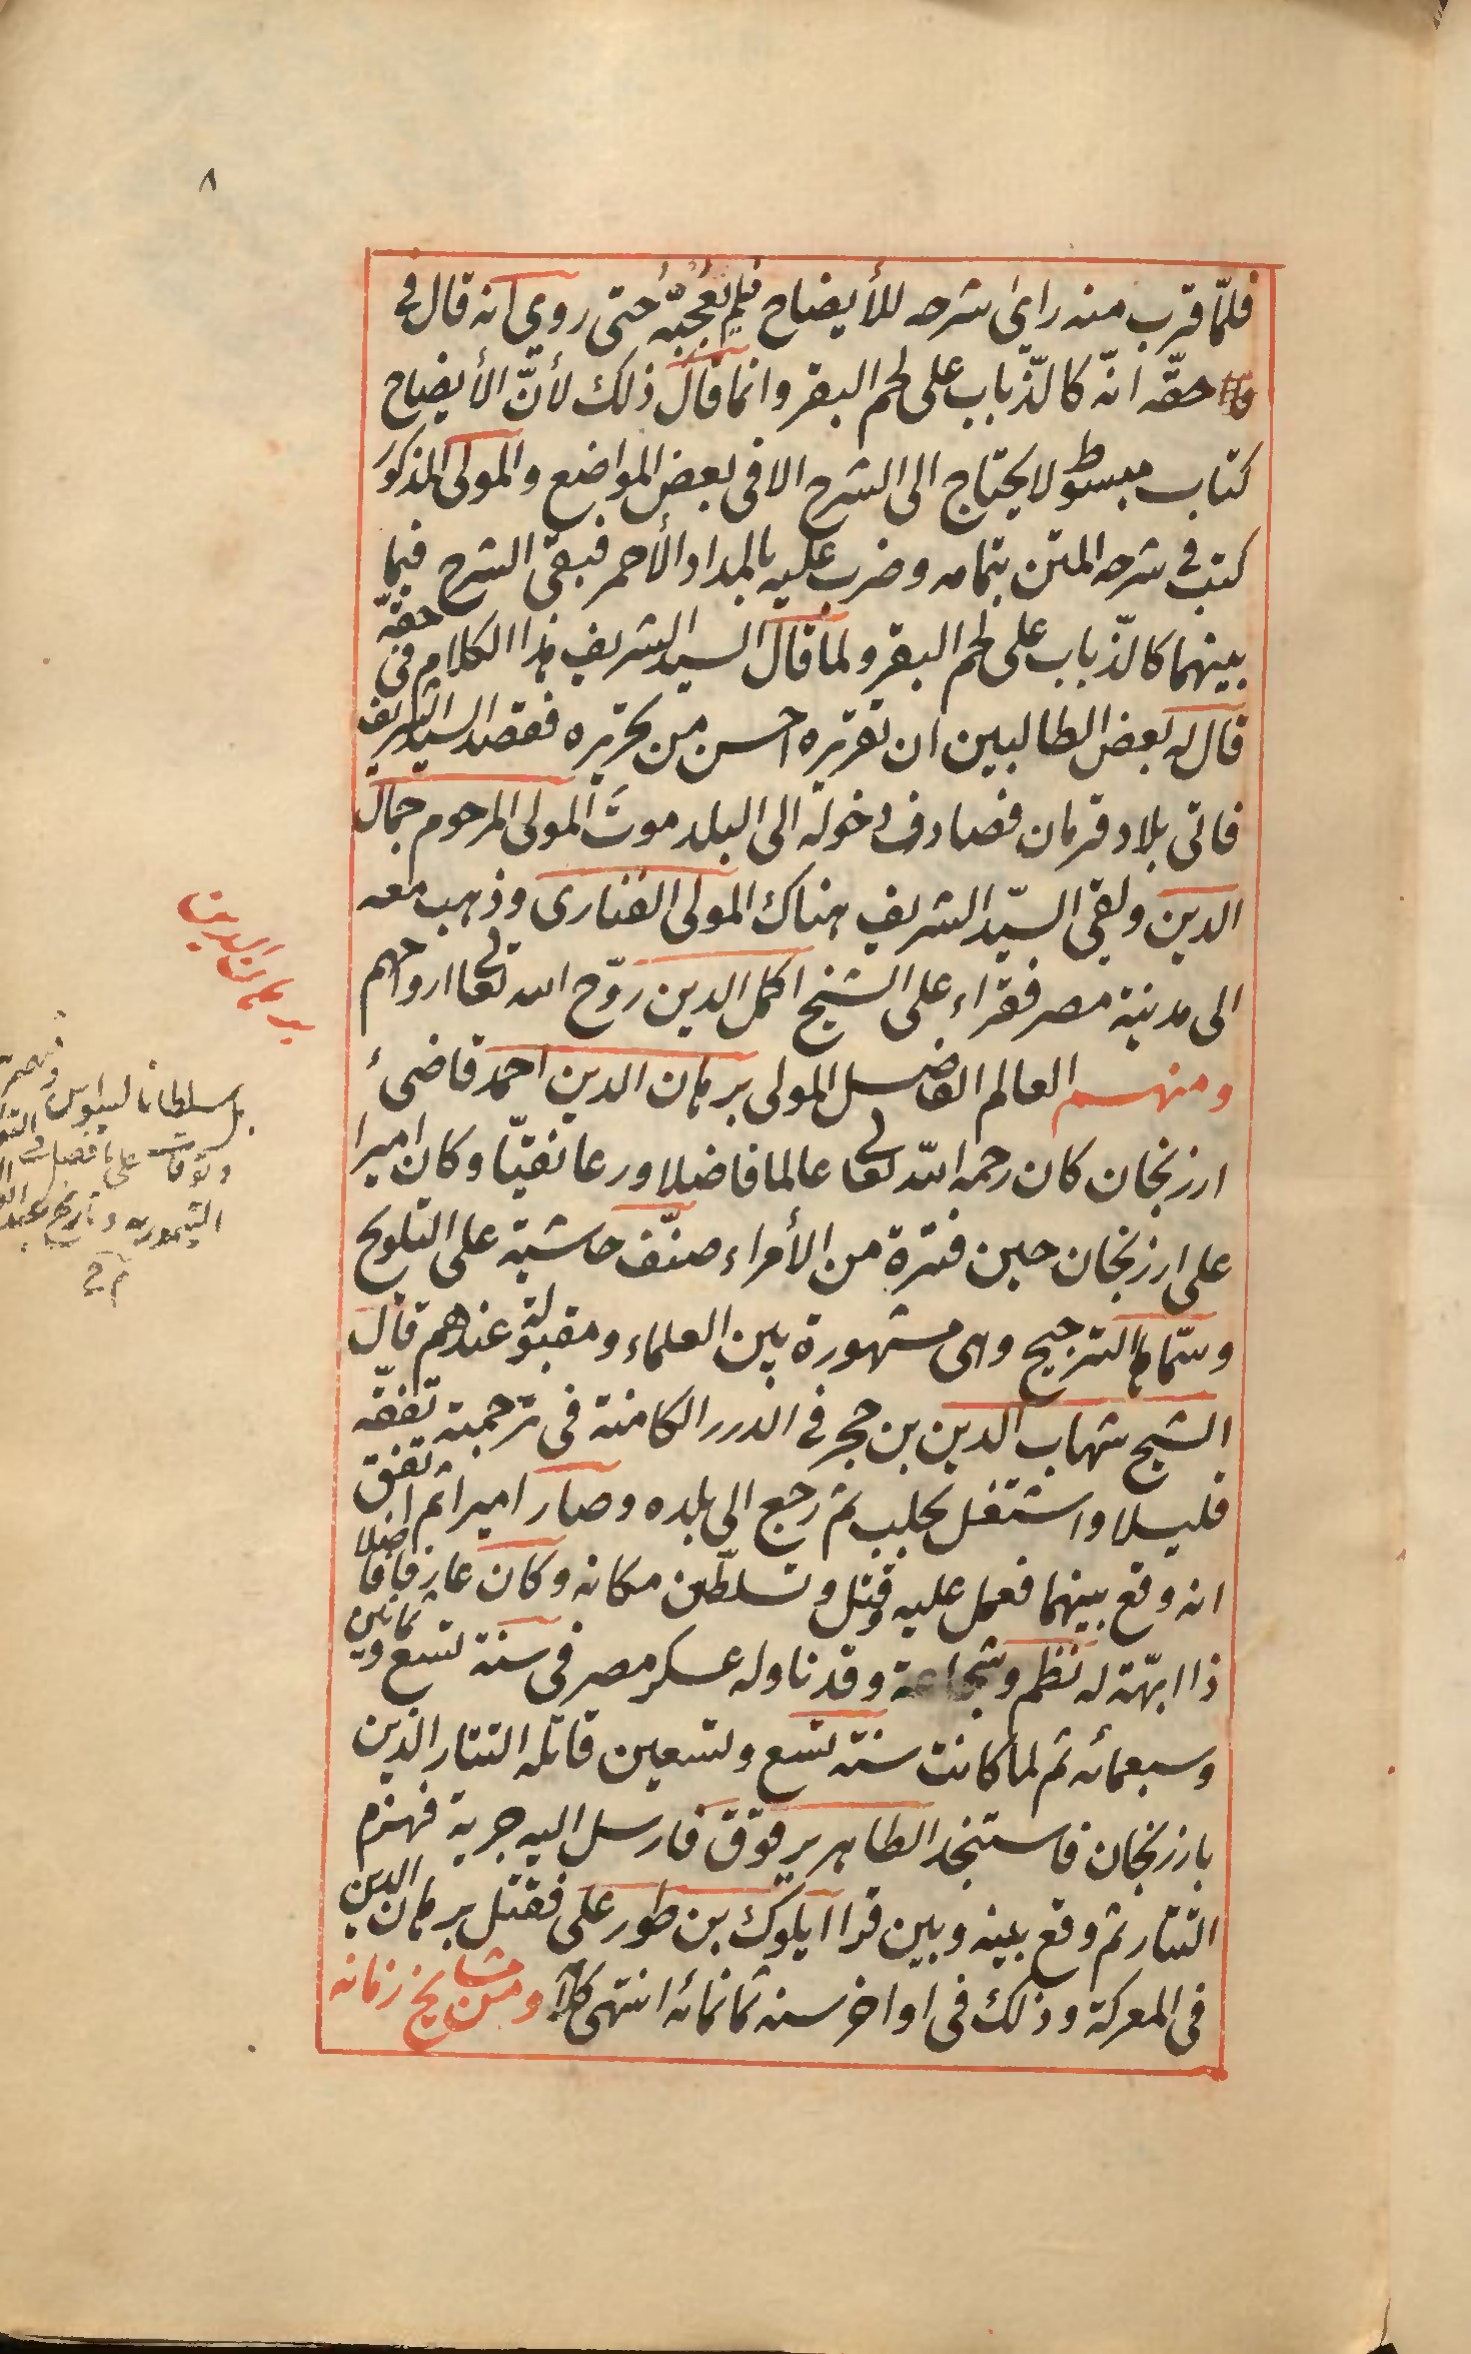 ٨
فلمّا قرب منه راى شرحه للأيضاح فلم يعجبه حتى روى انه قال فى
حقّه انّه كالذّباب على لحم البقر وانما قال ذلك لأنّ الأيضاح
كتاب مبسوط لا يحتاج الى الشرح الا فى بعض المواضع والمولى المذكور
كتب فى شرحه المتن بتمامه وضرب عليه بالمداد الأحمر فبقى الشرح فيما
بينهما كالذّباب على لحم البقر ولما قال السيد الشريف هذا الكلام فى حقّه
قال له بعض الطالبين ان تقريره احسن من تحريره فقصد السيد الشريف
فاتى بلاد قرمان فصادف دخوله الى البلد موتَ المولى المرحوم جمال
الدين ولقى السيّد الشريف هناك المولى الفنارى وذهب معه
الى مدينة مصر فقراء على الشيخ اكمل الدين روّح الله تعالى ارواحهم
ومنهم العالم الفاضل المولى برهان الدين احمد قاضىء
ارزنجان كان رحمه الله تعالى عالما فاضلا ورعا تقيّا وكان اميرا
على ارزنجان حين فترة من الأمراء صنّف حاشية على التلويح
وسمّاها الترجيح وهى مشهورة بين العلماء ومقبولة عندهم قال
الشيخ شهاب الدين بن حجر فى الدرر الكامنة فى ترجمته تفقّه
قليلا واشتغل بحلب ثم رجع الى بلده وصار اميرا ثم اتفق
انه وقع بينهما فعمل عليه وقتل وتسلطن مكانه وكان عارفا فاضلا
ذا ابهّة له نظم وشجاعة وقد ناوله عسكر مصر فى سنة تسع وثمانين
وسبعمائه ثم لما كانت سنة تسع وتسعين قاتله التتار الذين
بارزنجان فاستنجد الظاهر برقوق فارسل اليه جريدة فهزم
التتار ثم وقع بينه وبين قرا ايلوك بن طور على فقتل برهان الدين
فى المعركة وذلك فى اواخر سنه ثمانمائه انتهى كلامه ومن مشايخ زمانه
برهان الدين
سلطانا لسيواس وقيصرية
وتوقات على ما فصل فى
التيمورية وتاريخ